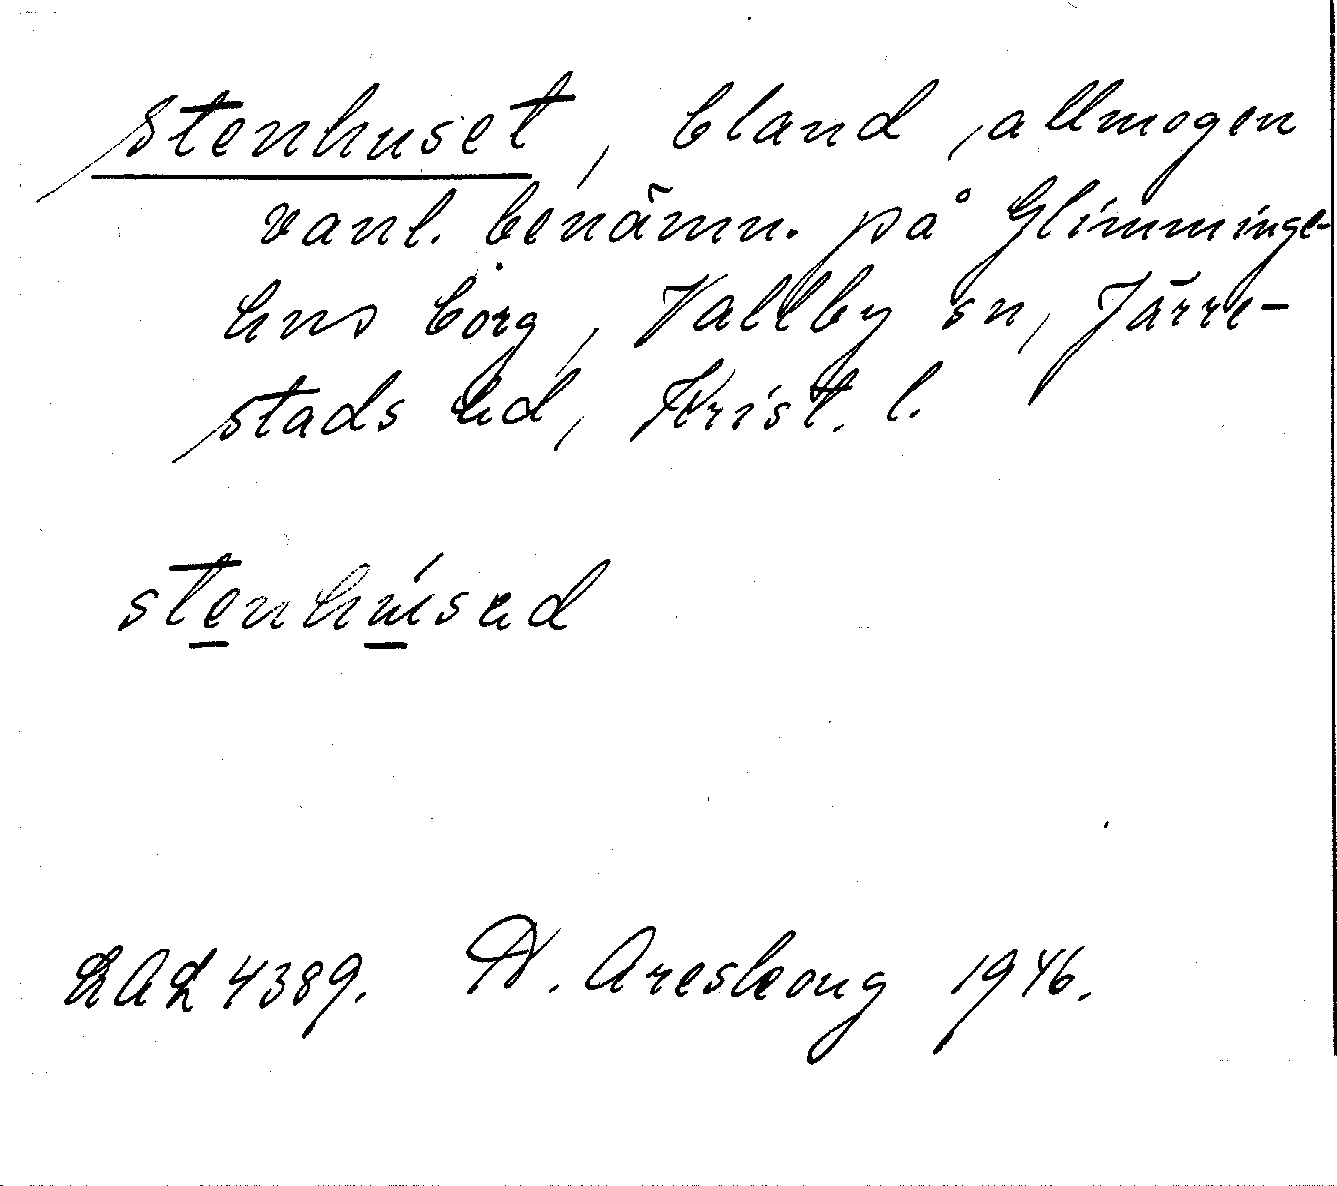 Stenhuset, bland allmogen
vanl. benämn. på Glimminge-
hus borg, Vallby sn, Järre-
stads hd, Krist. l.
LAL 4389. Areskoug 1946.